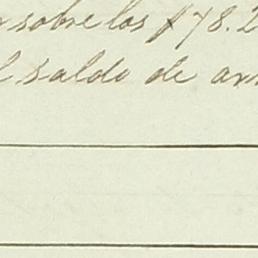 sobre los $78.2
l saldo de an